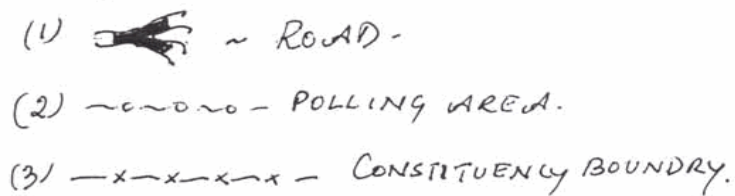 (1) ~ ROAD-
(2) ~o~o~o- POLLING AREA.
(3) -x-x-x-x- CONSTITUENCY BOUNDRY.